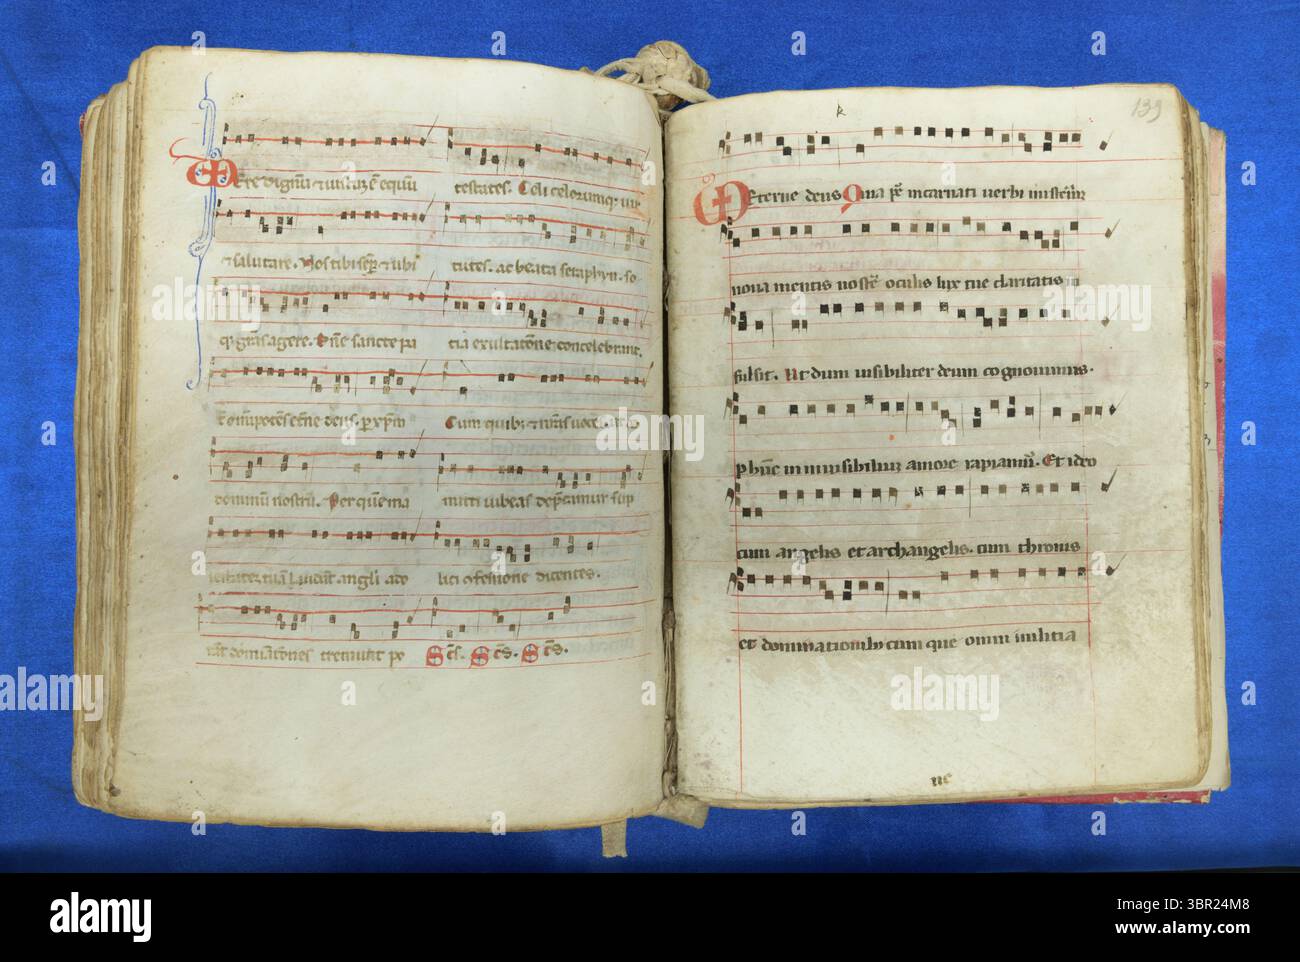 Ere dignũ ⁊ iustũ ẽ equũ
⁊ salutare. Nos tibi semp̲ ⁊ ubi
q̲ gr̃as agere. Dñe sancte pa
t̲ omp̃otẽs et̲ne deus. p̲ xp̃m
dominũ nostrũ. Per quẽ ma
iestatẽ tuã laudãt angli ado
rãt dominatiões tremunt po
testates. Celi celorumq̲ uir
tutes. ac beata seraphyn. so
tia exultatiõne concelebrant.
Cum quib; ⁊ nr̃as uoces
mitti iubeas dep̃camur sup
lici cõfessione dicentes.
Sc̃s. Sc̃s. Sc̃s.
k
139
Eterne deus Quia p̲ incarnati uerbi misteriũ
noua mentis nostre oculis lux tue claritatis in
fulsit. Ut dum uisibiliter deum cognoscimus.
p̲ hũc in inuisibilium amore rapiamur. Et ideo
cum angelis et archangelis. cum thronis
et dominationib; cum que omni militia
alamy
Image ID: 3BR24M8
www.alamy.com